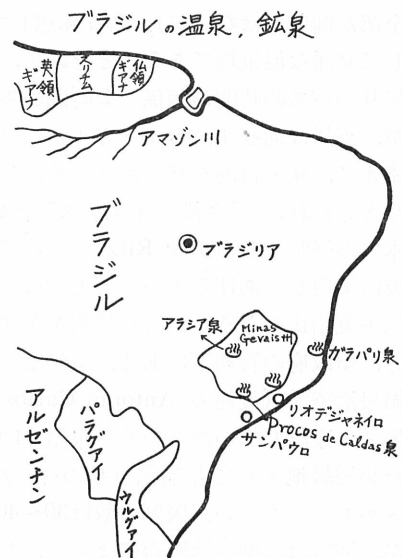 ブラジルの温泉，鉱泉
英領
ギアナ
スリナム
仏領
ギアナ
アマゾン川
ブラジル
ブラジリア
アラシア泉
Minas
Gerais州
ガラパリ泉
リオデジャネイロ
Procos de Caldas泉
サンパウロ
パラグアイ
アルゼンチン
ウルグアイ